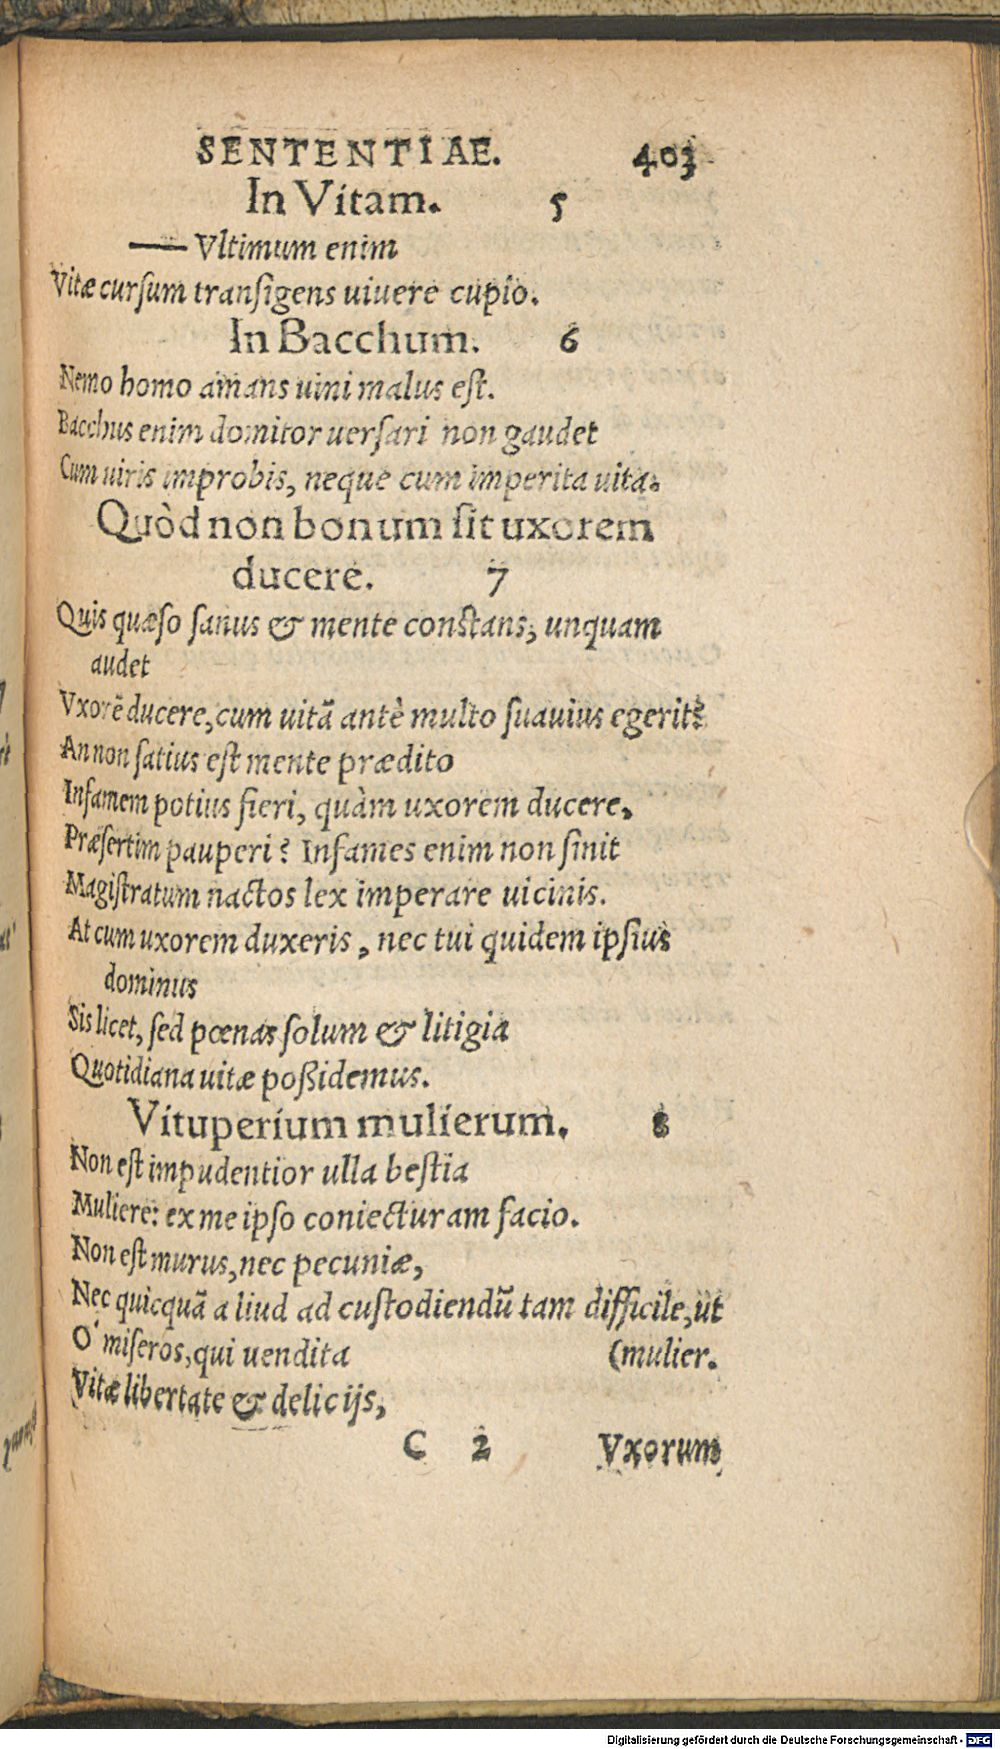 SENTENTIAE. 403
In Vitam. 5
— Vltimum enim
Vitæ cursum transigens uiuere cupio.
In Bacchum. 6
Nemo homo amans uini malus est.
Bacchus enim domitor uersari non gaudet
Cum uiris improbis, neque cum imperita uita.
Quòd non bonum sit uxorem
ducere. 7
Quis quæso sanus & mente constans, unquam
audet
Vxorē ducere, cum uitā antè multo suauius egerit?
An non satius est mente prædito
Infamem potius fieri, quàm uxorem ducere,
Præsertim pauperi? Infames enim non sinit
Magistratum nactos lex imperare uicinis.
At cum uxorem duxeris, nec tui quidem ipsius
dominus
Sis licet, sed pœnas solum & litigia
Quotidiana uitæ poßidemus.
Vituperium mulierum. 8
Non est impudentior ulla bestia
Muliere: ex me ipso coniecturam facio.
Non est murus, nec pecuniæ,
Nec quicquā aliud ad custodiendū tam difficile, ut
O' miseros, qui uendita (mulier.
Vitæ libertate & delicijs,
C 2 Vxorum
Digitalisierung gefördert durch die Deutsche Forschungsgemeinschaft - DFG